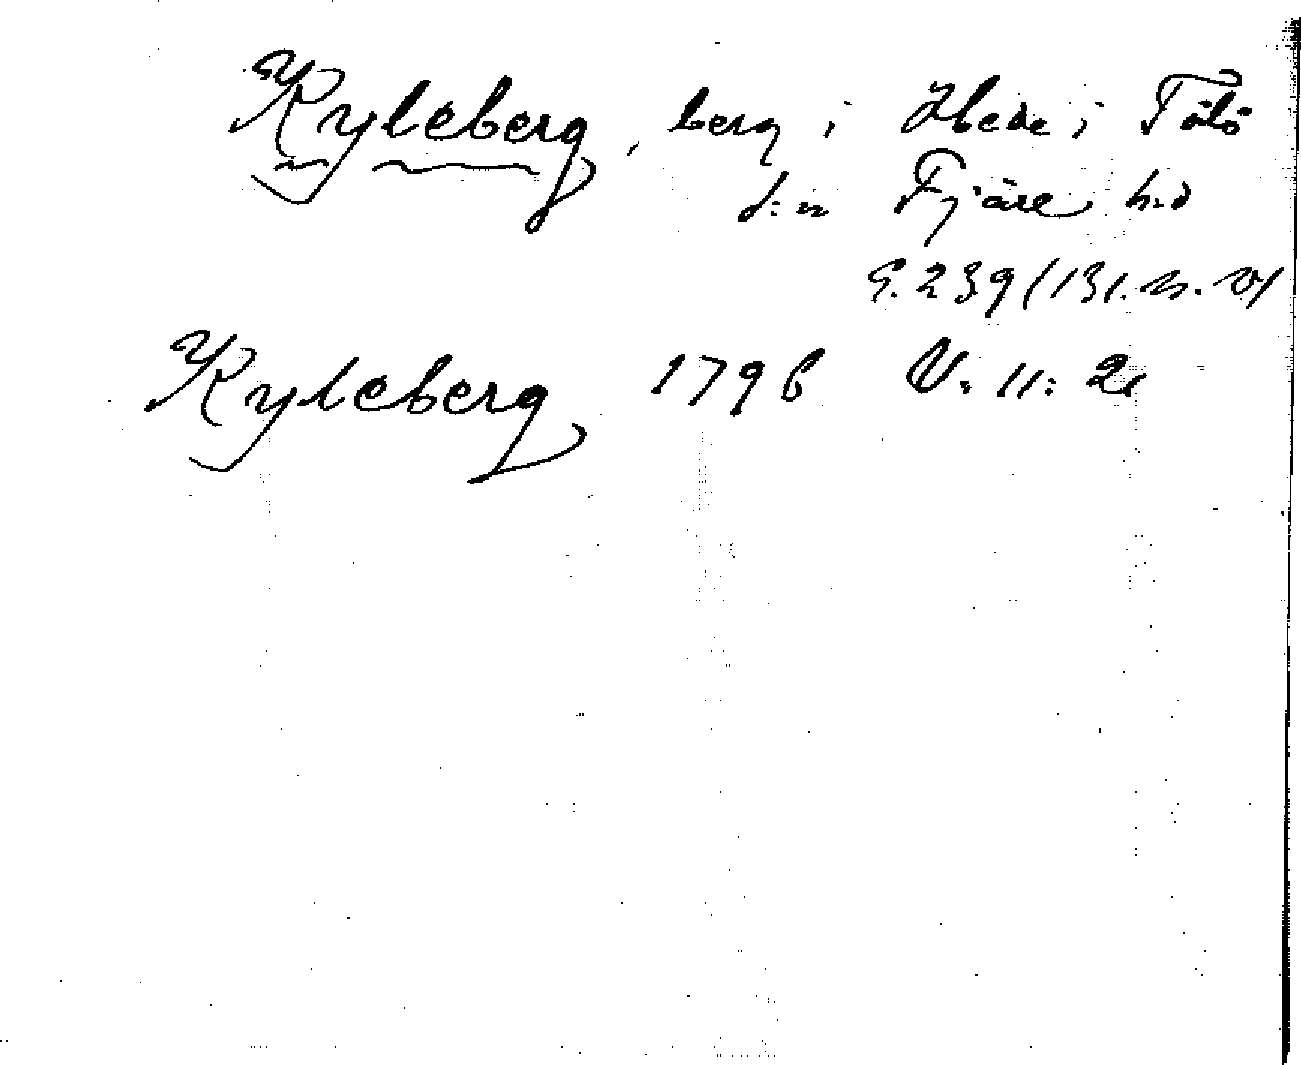 Kyleberg, berg i Hede i Tölö
s:n Fjäre h:d
S. 239 (131. n. V)
Kyleberg 1796 V. 11: 2